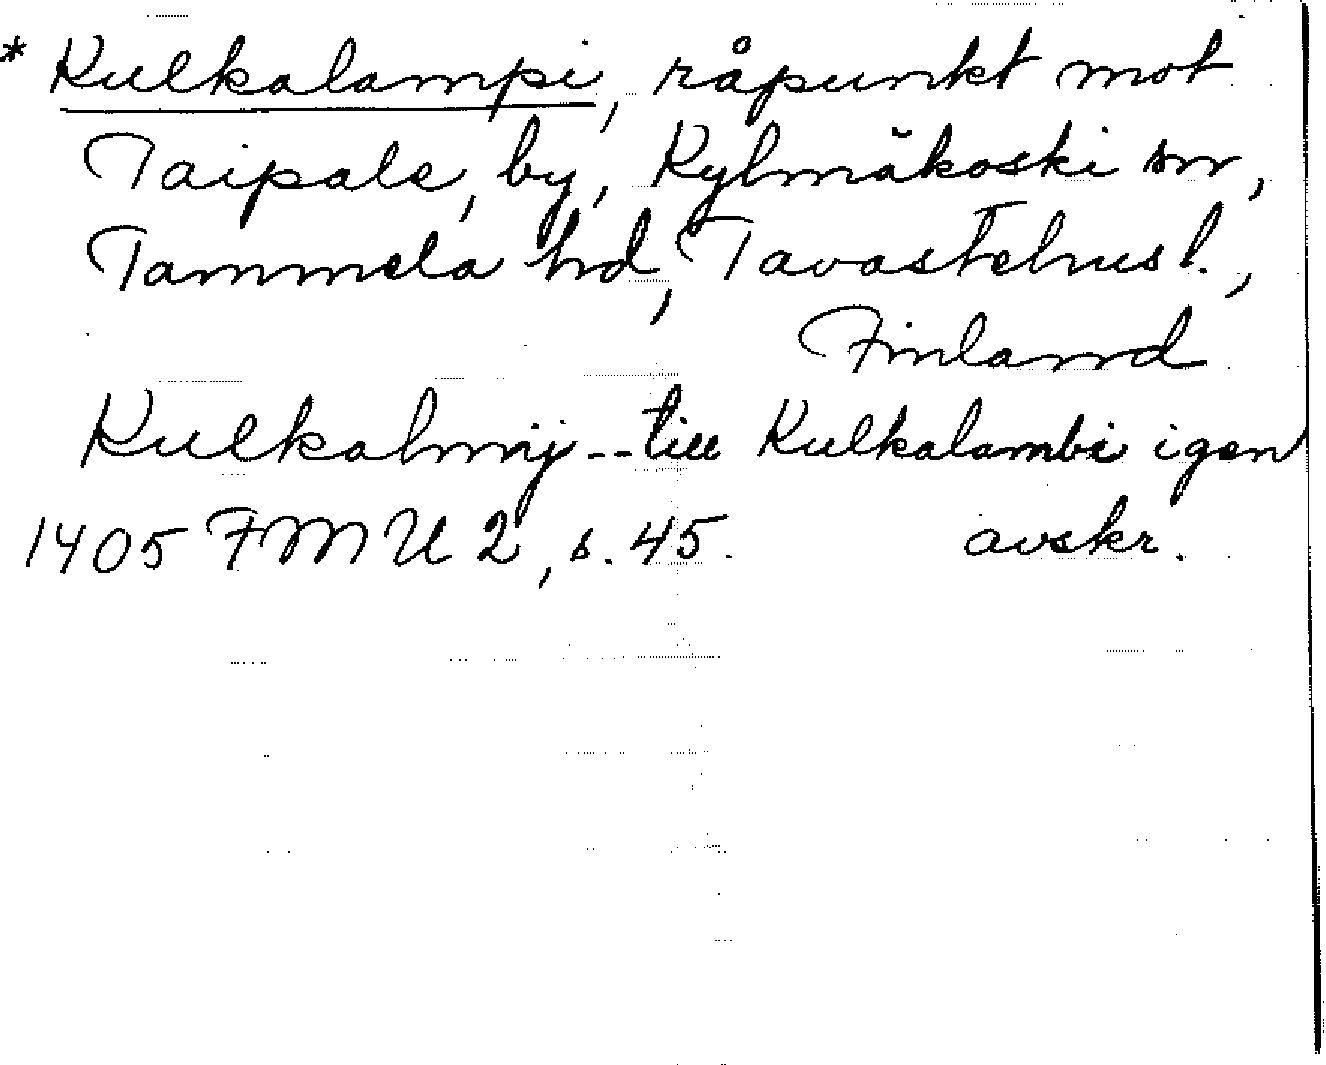 * Kulkalampi, råpunkt mot
Taipale, by, Kylmäkoski sn,
Tammela hd, Tavastehus l.,
Finland
Kulkalmij -- till Kulkalambi igen
1405 FMU 2, s. 45. avskr.